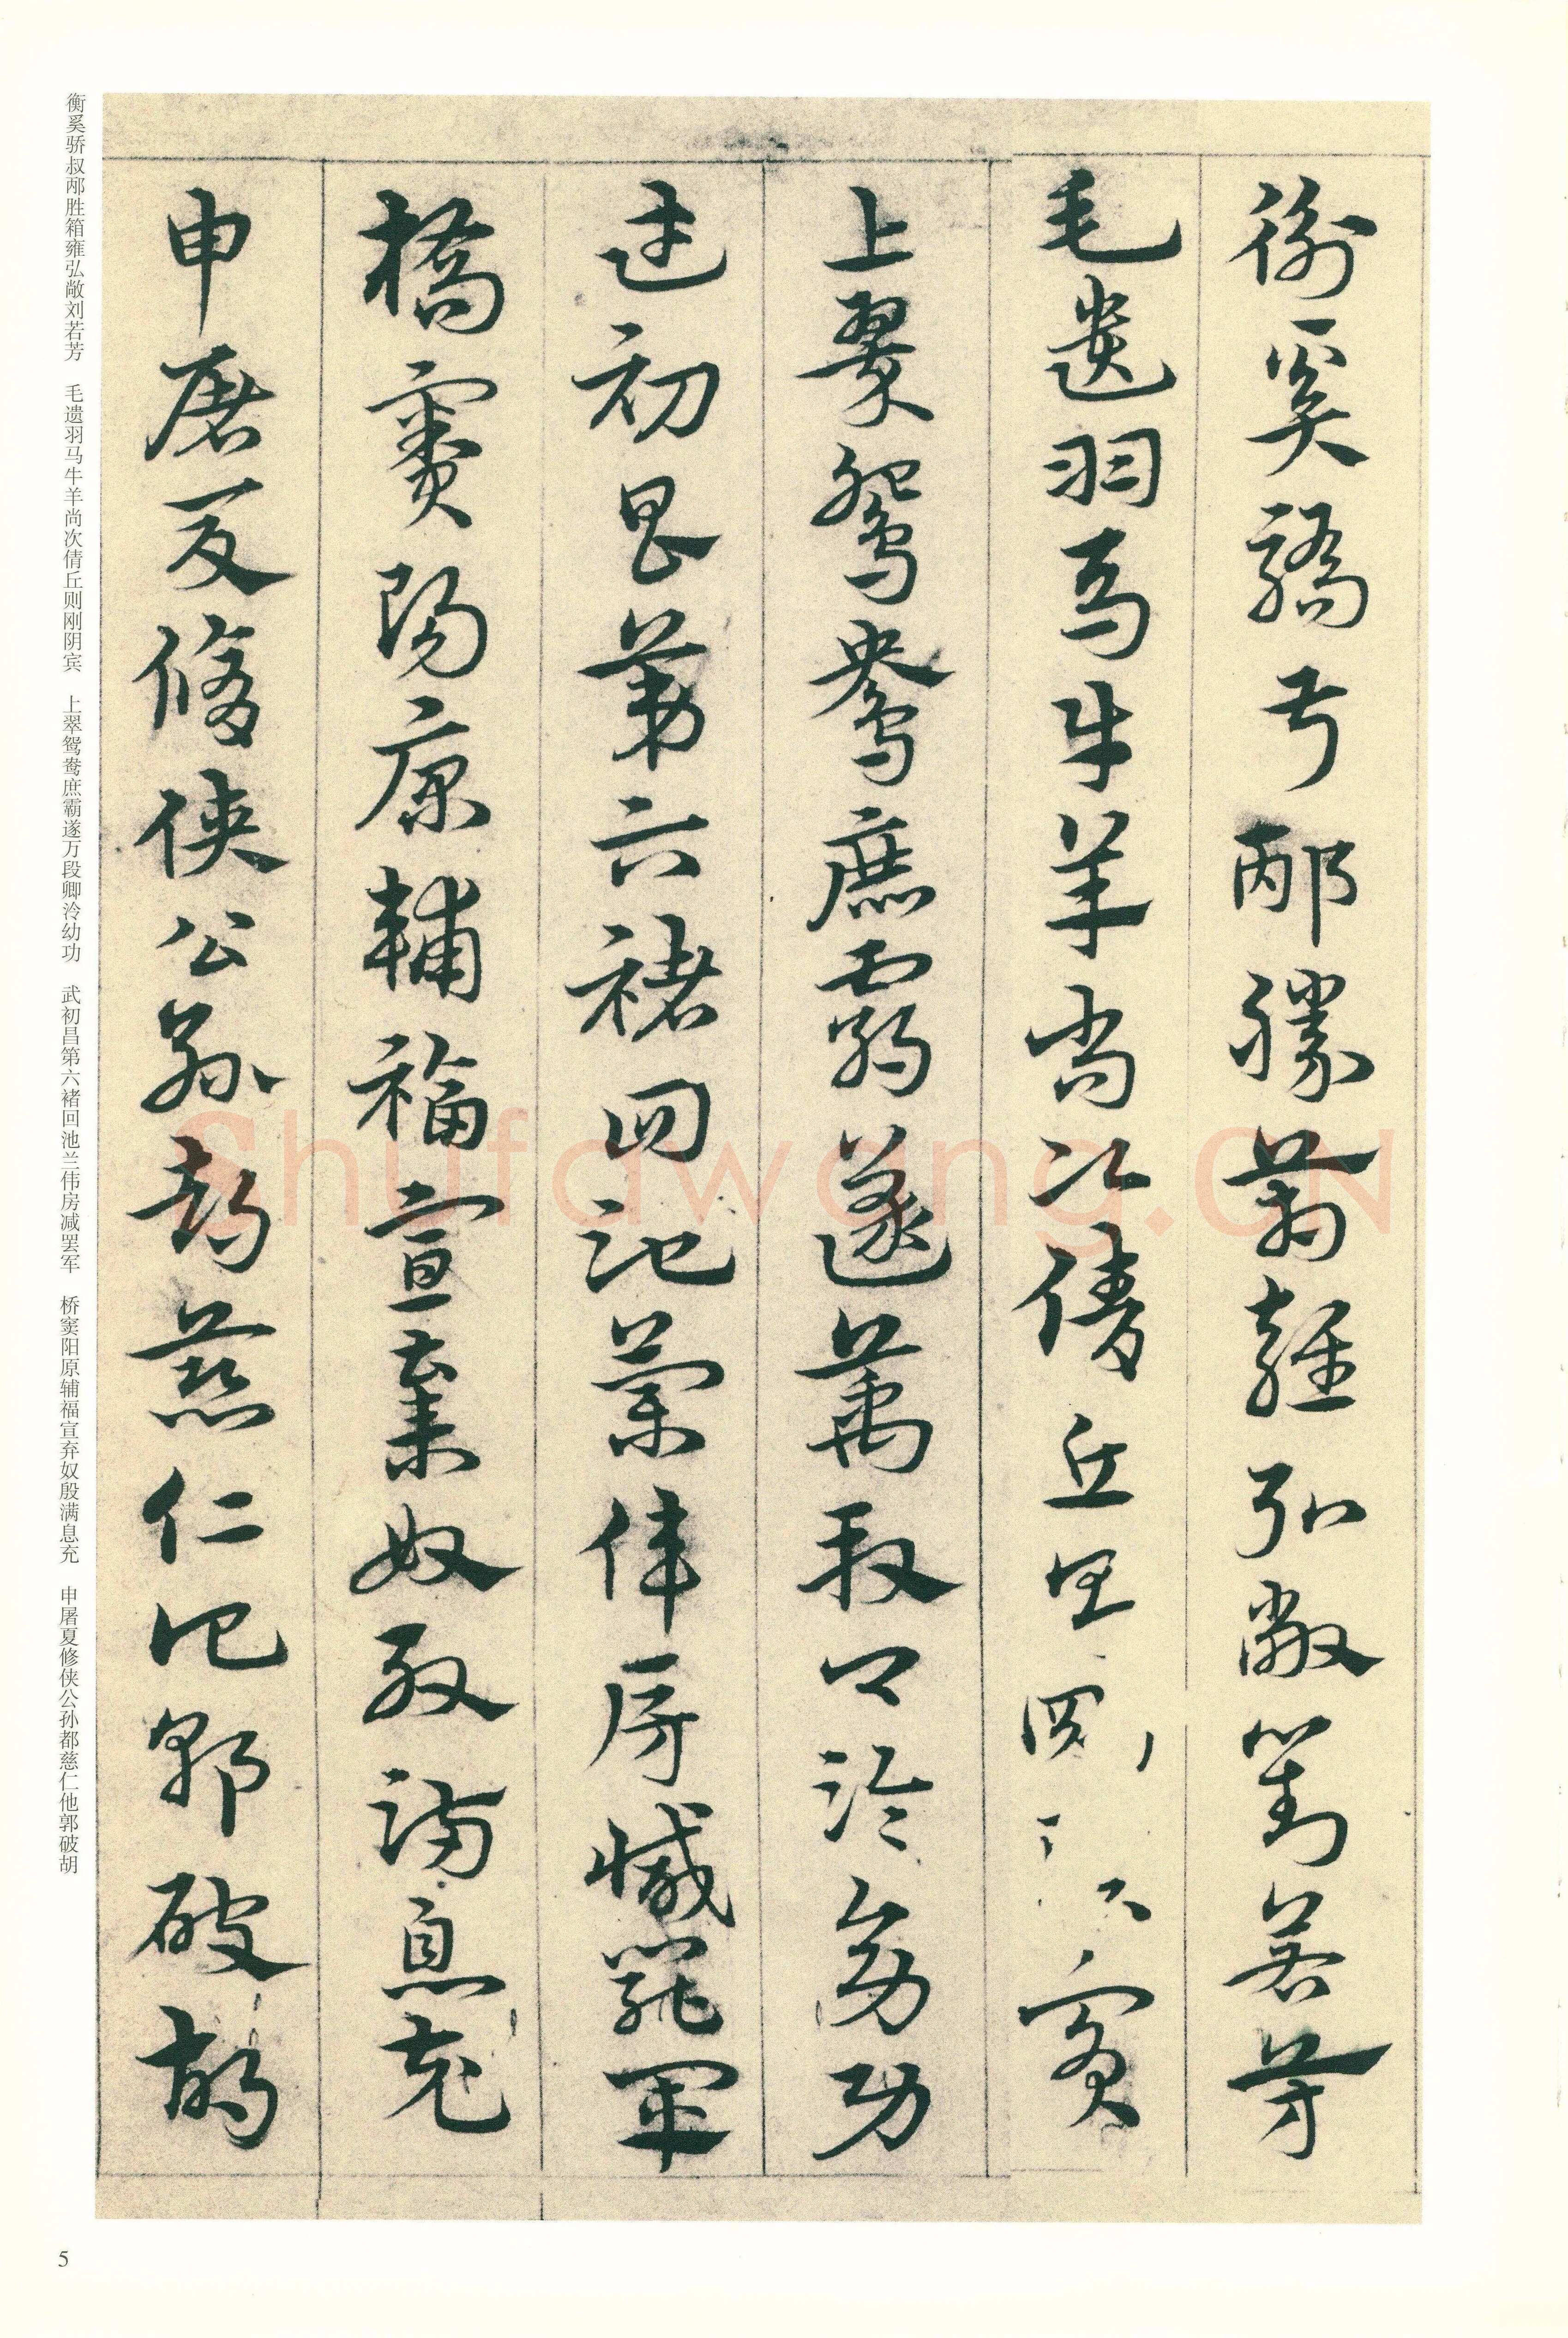 衡奚驕叔邴勝箱雍弘敞劉若芳
毛遺羽馬牛羊尚次倩丘則剛陰賓
上翠鴛鴦庶霸遂萬段卿泠幼功
武初昌第六褚回池蘭偉房減罷軍
橋竇陽原輔福宣棄奴殷滿息充
申屠夏脩俠公孫都慈仁他郭破胡
衡奚骄叔邴胜箱雍弘敞刘若芳 毛遗羽马牛羊尚次倩丘则刚阴宾 上翠鸳鸯庶霸遂万段卿泠幼功 武初昌第六褚回池兰伟房减罢军 桥窦阳原辅福宣弃奴殷满息充 申屠夏修侠公孙都慈仁他郭破胡
5
Shufawang.CN